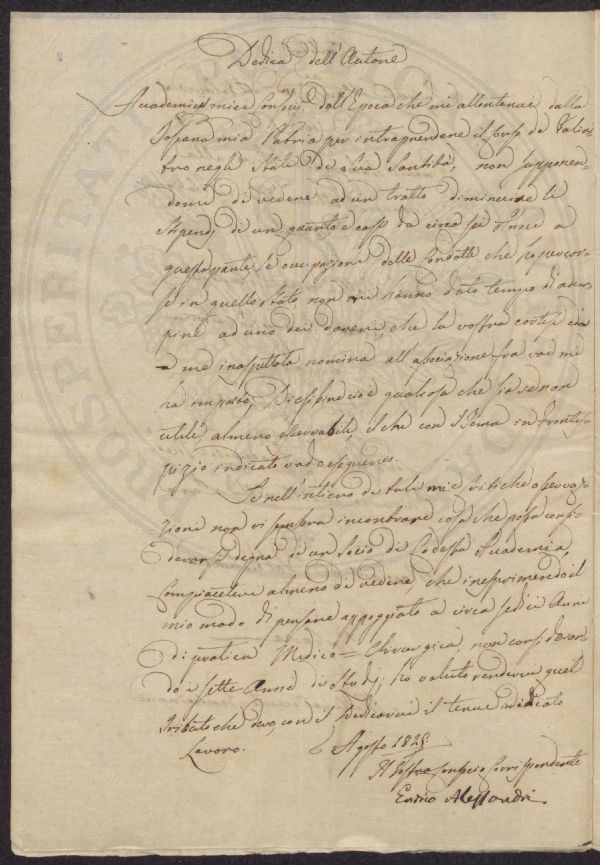 Dedica dell'Autore
Accademici miei Consocj dall'Epoca che mi allontanai dalla
Toscana mia Patria per intraprendere il corso di
negli Stati di Sua Santità, non supponen-
domi di vedere ad un tratto diminuire li
Stipendj di un quanto e così da circa sei Anni a
questa parte, le occupazioni delle Condotte che ho percor-
se in quello stato non mi hanno dato tempo di adem-
pire ad uno dei doveri, che la vostra cortese cia
a me inaspettata nomina all'associazione fra voi mi
ha imposto, Di esibire cioè qualcosa che sia se non
utile, almeno osservabile, il che con Tema in fronti-
spizio indicato vado eseguendo.
Se nell'intiero di tali mie critiche osserva-
zioni non vi sembra incontrare cosa che possa consi-
derarsi degna di un Socio di Codesta Accademia,
Compiacetevi almeno di vedere, che in esprimendo il
mio modo di pensare appoggiato a circa sedici Anni
di pratica Medico=Chirurgica, non consideran-
do i sette Anni di Studj, ho voluto rendervi quel
tributo che devo, con il Dedicarvi il tenue indicato
Lavoro. 6 Agosto 1825
Il Vostro Consocio Corrispondente
Enrico Alessandri
PROSPERITÀ